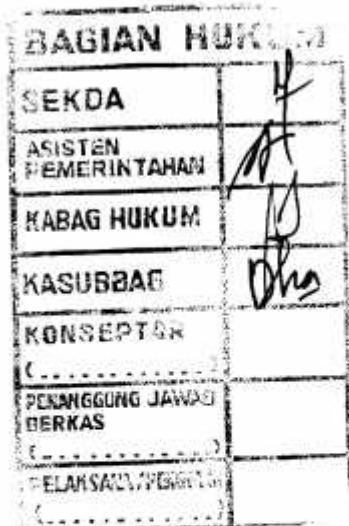 BAGIAN HUKUM
SEKDA
ASISTEN
PEMERINTAHAN
KABAG HUKUM
KASUBBAG
KONSEPTOR
(..........)
PENANGGUNG JAWAB
BERKAS
(..........)
(..........)